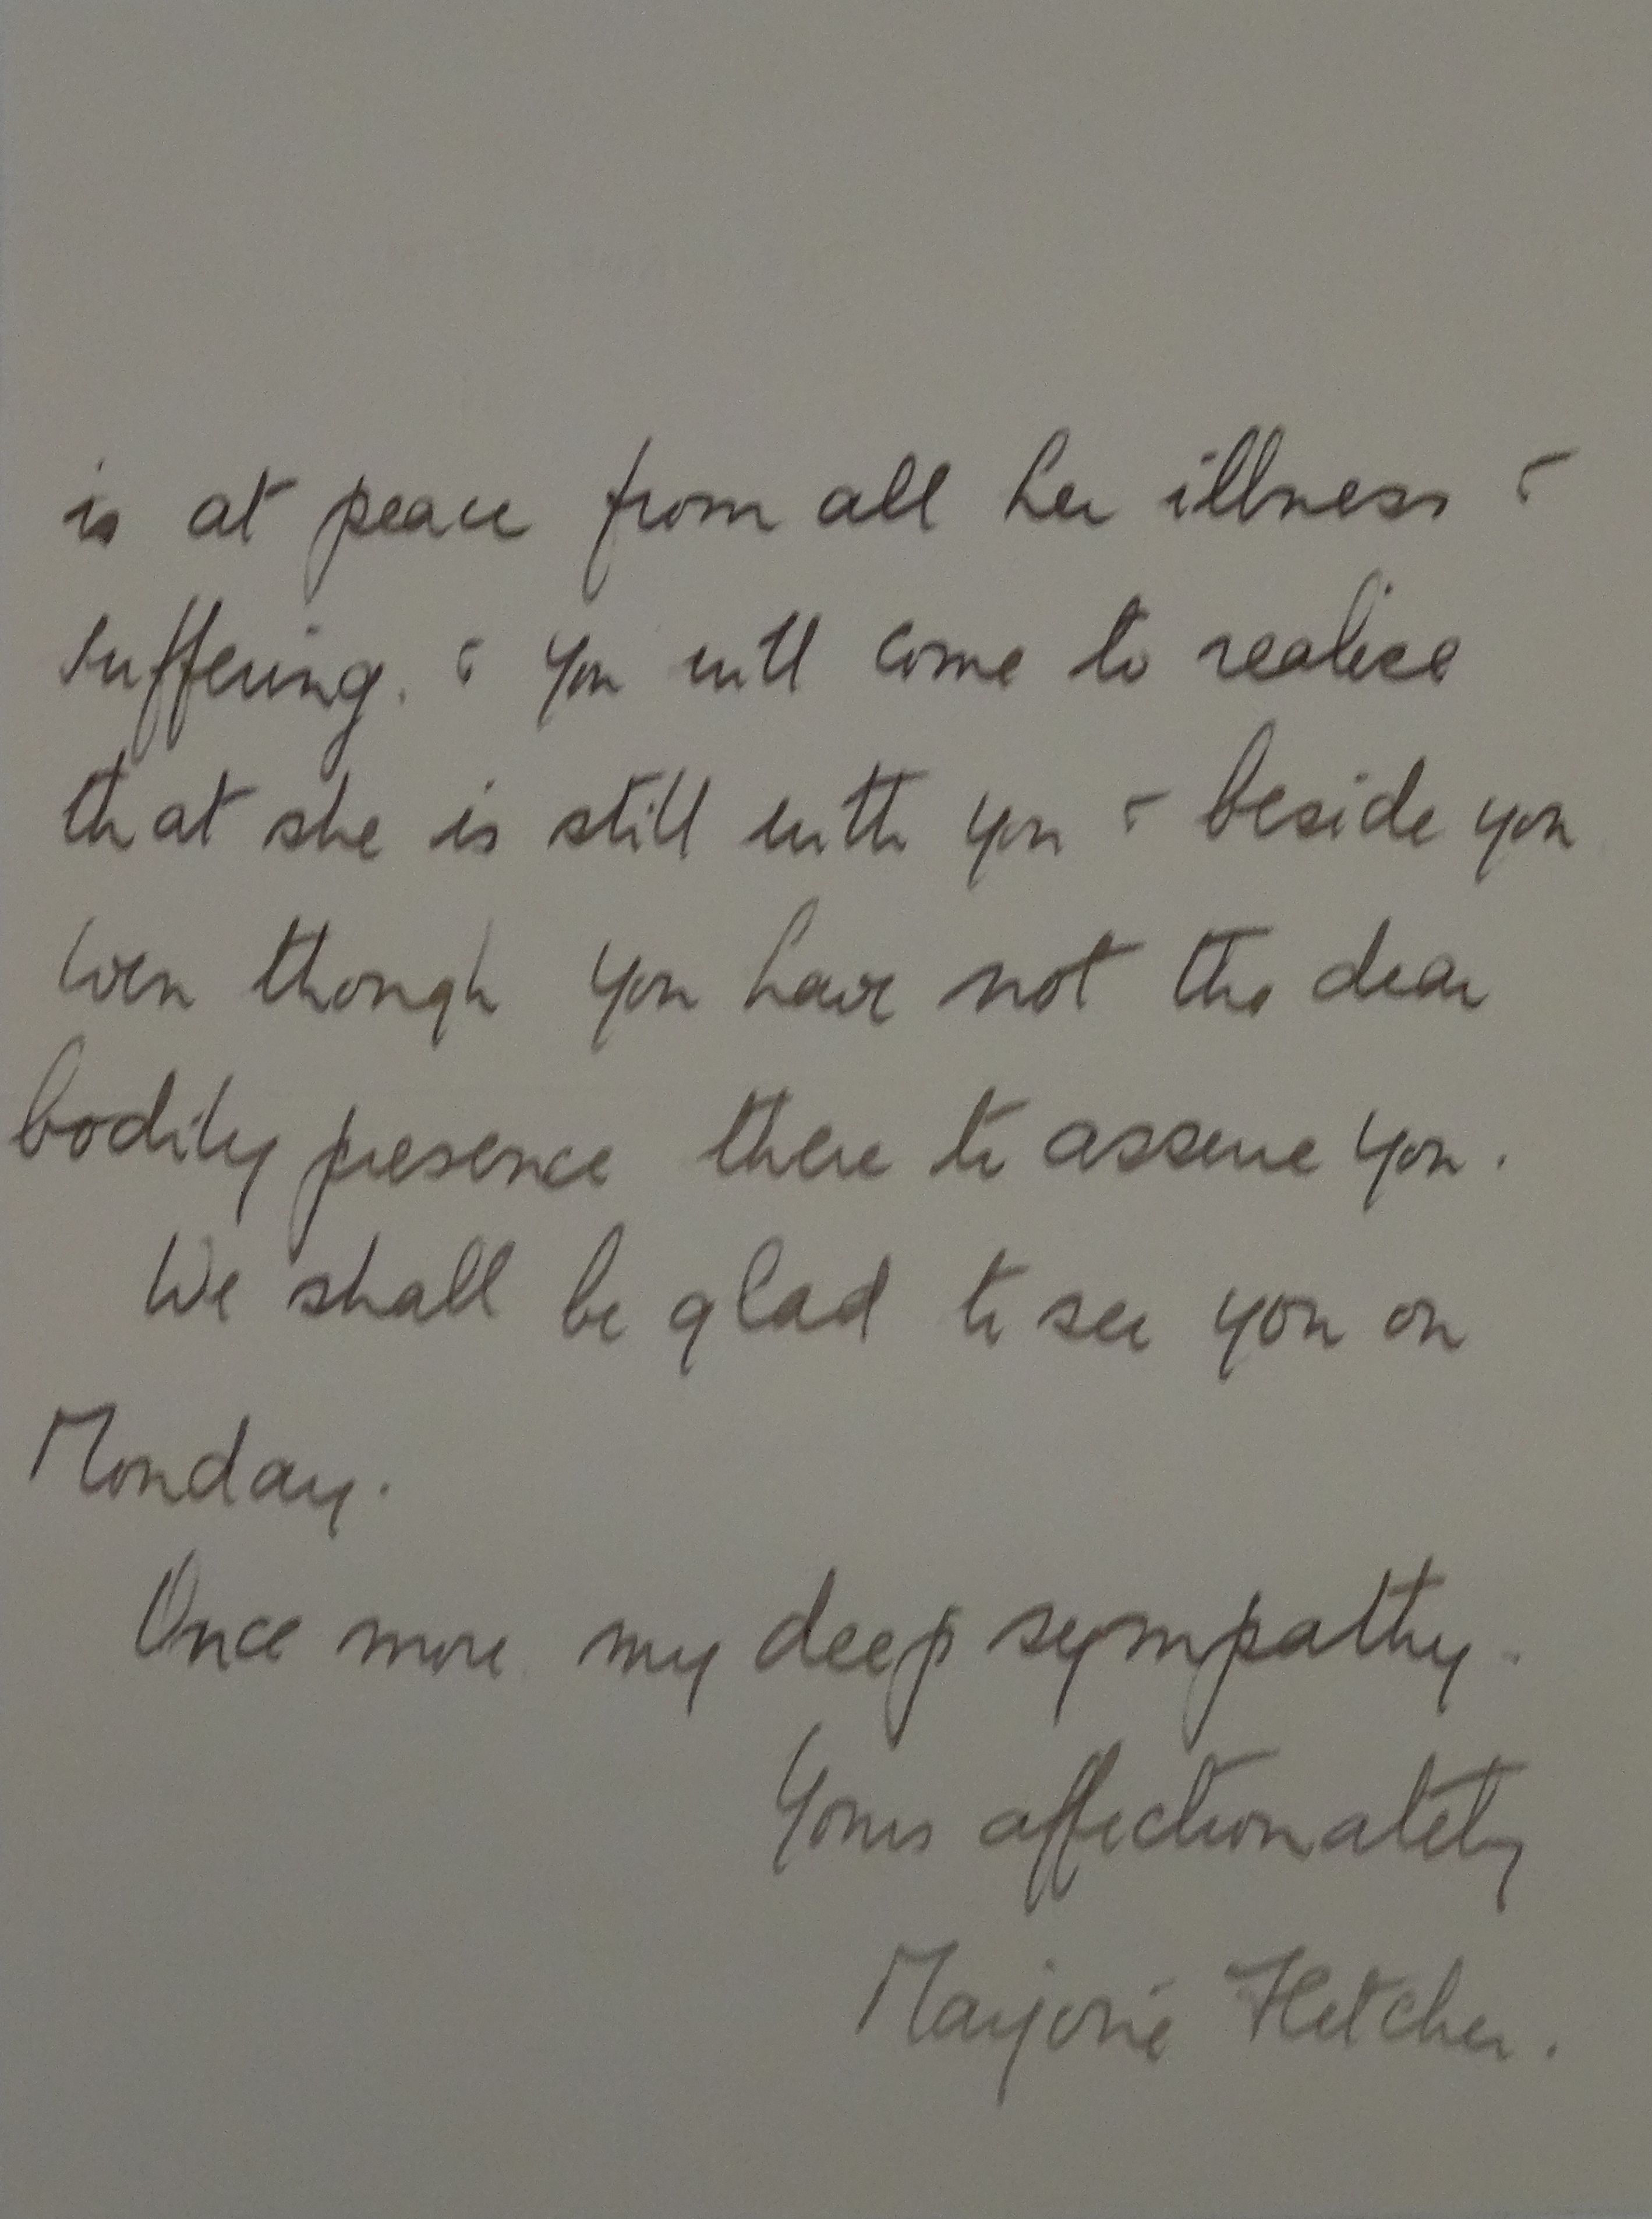 is at peace from all her illness &
suffering. & you will come to realise
that she is still with you & beside you
even though you have not the dear
bodily presence there to assure you.
We shall be glad to see you on
Monday.
Once more my deep sympathy.
Yours affectionately
Marjorie Fletcher.